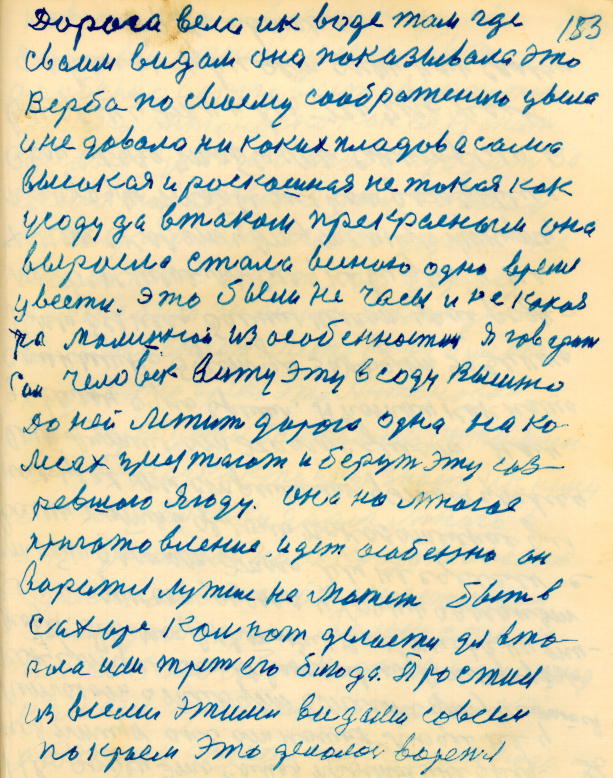 Дорога вела и к воде там где 183
своим видам она показывала это
Верба по своему соображению цвела
и не довала ни каких пладов а сама
высокая и роскошная не такая как
у саду да в таком прекрасным она
выросла стала весною одно время
цвести. Это были не часы и не какая
та малинной из особенности я говорит
Сам человек вижу эту в саду вышню
до ней летит дорога одна на ко-
лесах и берут эту соз-
ревшою Ягоду. она на многое
приготовление идет особенно он
варения лутше не может быть в
сахаре компот делается для вто-
рова или третего блюда. Простим
из всеми этими видами совсем
покрыем Это делалось варения